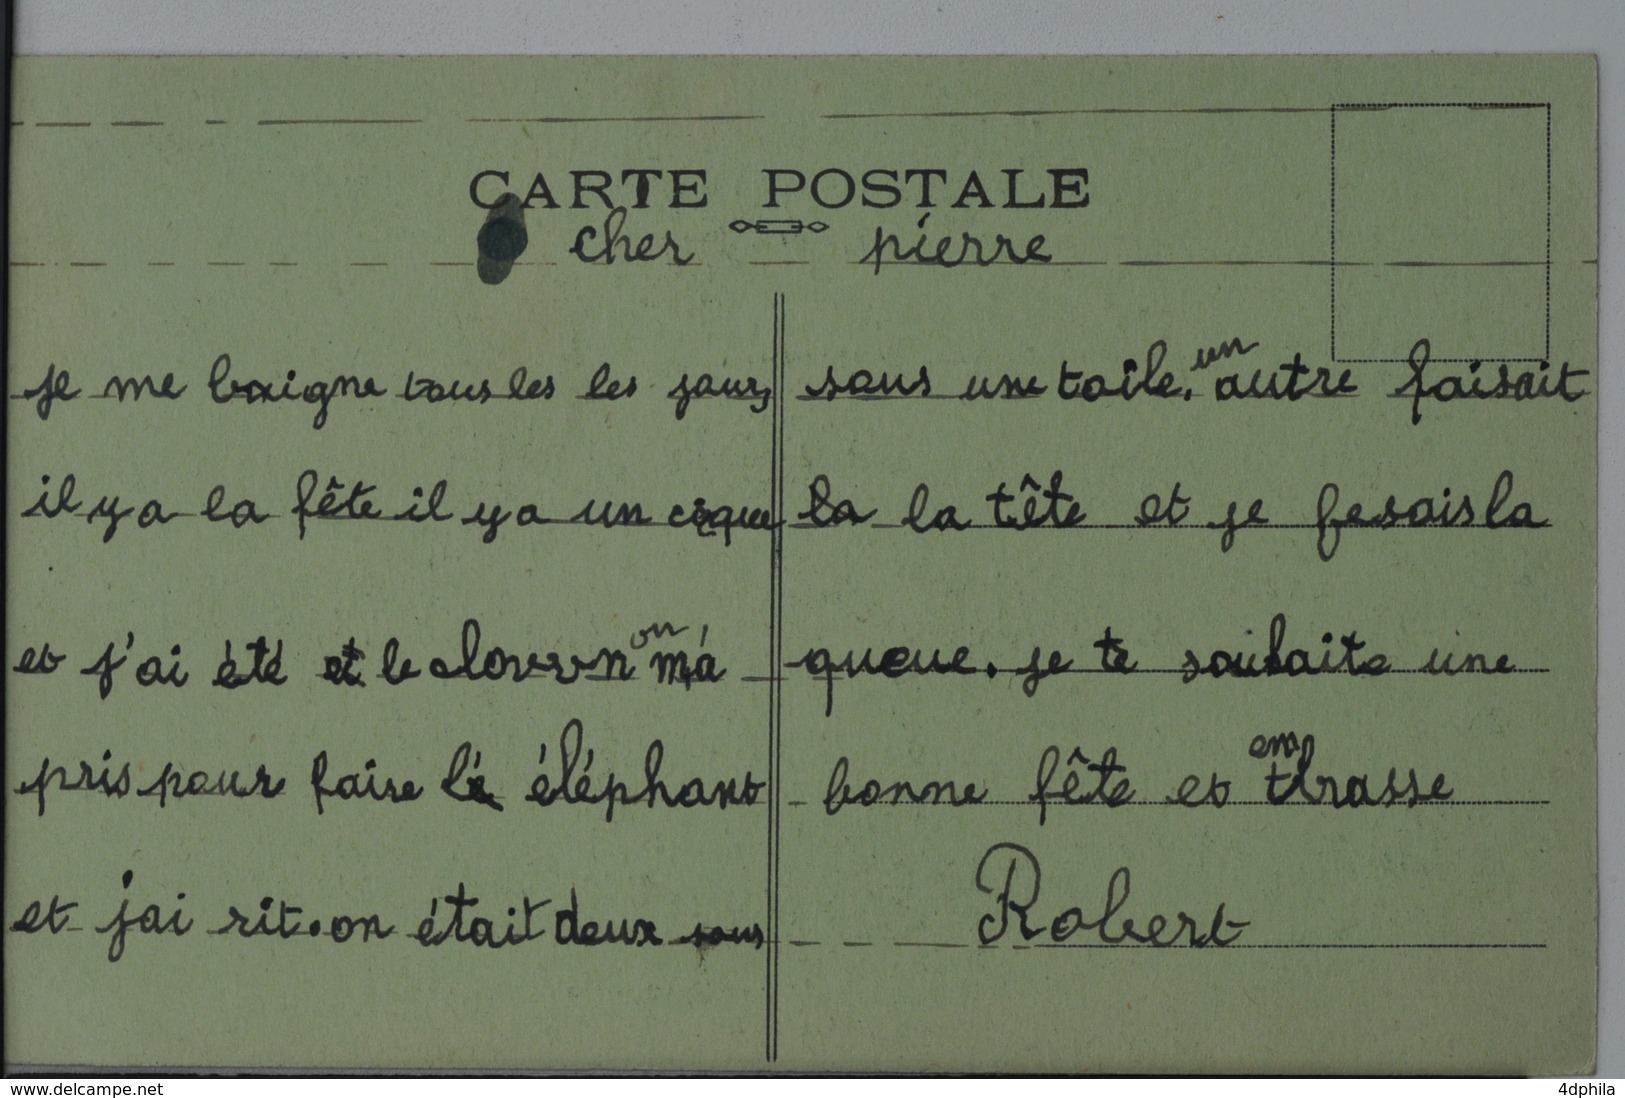 CARTE POSTALE
cher pierre
je me baigne tous les les jours
il y a la fête il y a un cique
et j'ai été et le clown on m'a
pris pour faire l'é éléphant
et j'ai rit. on était deux sous
sous une toile. un autre faisait
la la tête et je fesais la
queue. je te souhaite une
bonne fête et em tbrasse
Robert
www.delcampe.net
4dphila